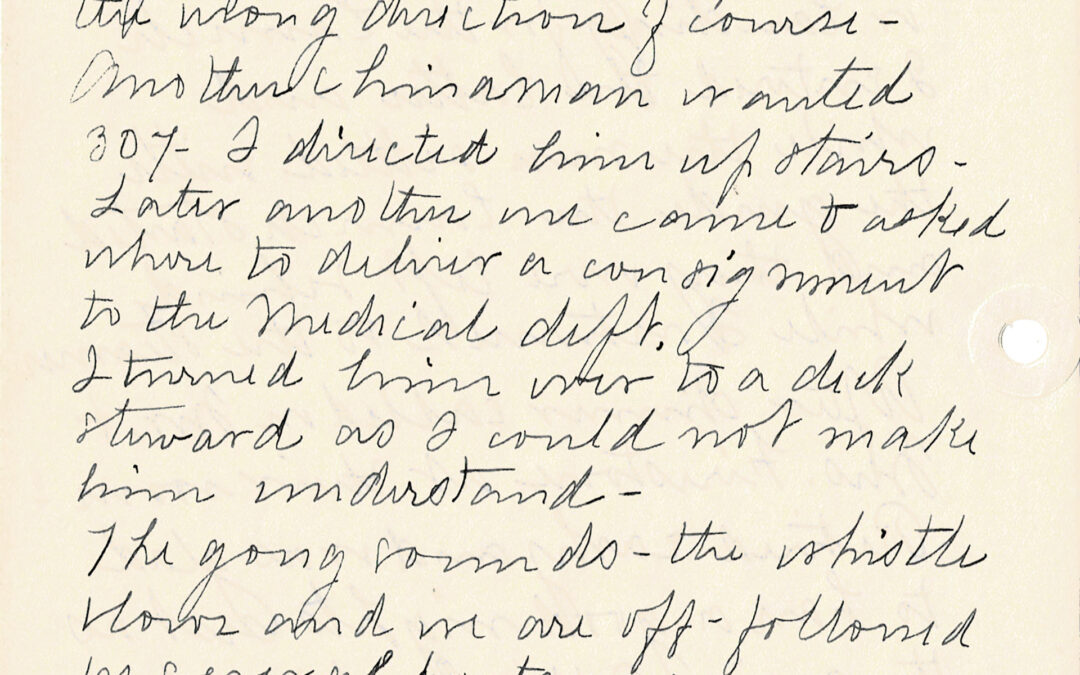 the wrong direction of course -
Another Chinaman wanted
307- I directed him up stairs -
Later another one came & asked
where to deliver a consignment
to the Medical dept.
I turned him over to a deck
steward as I could not make
him understand -
The gong sounds - the whistle
blows and we are off - followed
by several